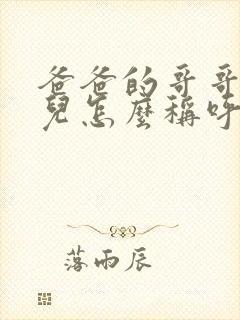 爸爸的哥哥
兒怎麼稱呼
落雨辰